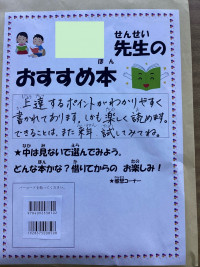 せんせい
先生の
ぼん
おすすめ本
上達するポイントがわかりやすく
書かれてあります。しかも楽しく読めます。
できることは、また来年 試してみてね。
なか み えら
★中は見ないで選んでみよう。
ほん か たの
どんな本かな？借りてからの お楽しみ！
★感想コーナー